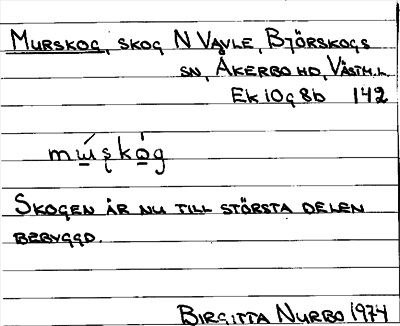 MURSKOG, SKOG N VÅVLE, BJÖRSKOGS
SN, ÅKERBO HD, VÄSTM.L.
Ek 10g8b 142
mɯ́şkǫ́g
SKOGEN ÄR NU TILL STÖRSTA DELEN
BEBYGGD.
BIRGITTA NURBO 1974